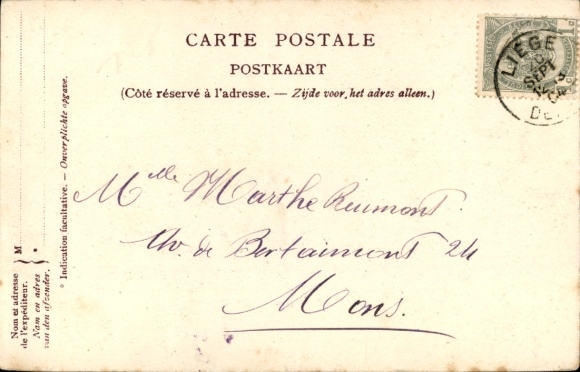 CARTE POSTALE
POSTKAART
(Côté réservé à l'adresse. — Zijde voor het adres alleen.)
LIÉGE
SEPT
Mlle Marthe Reumont.
Av. de Bertaimont 24
Mons.
° Indication facultative. — Onverplichte opgave.
M
Nom et adresse
de l'expéditeur.
Nom en adres
van den afzender.